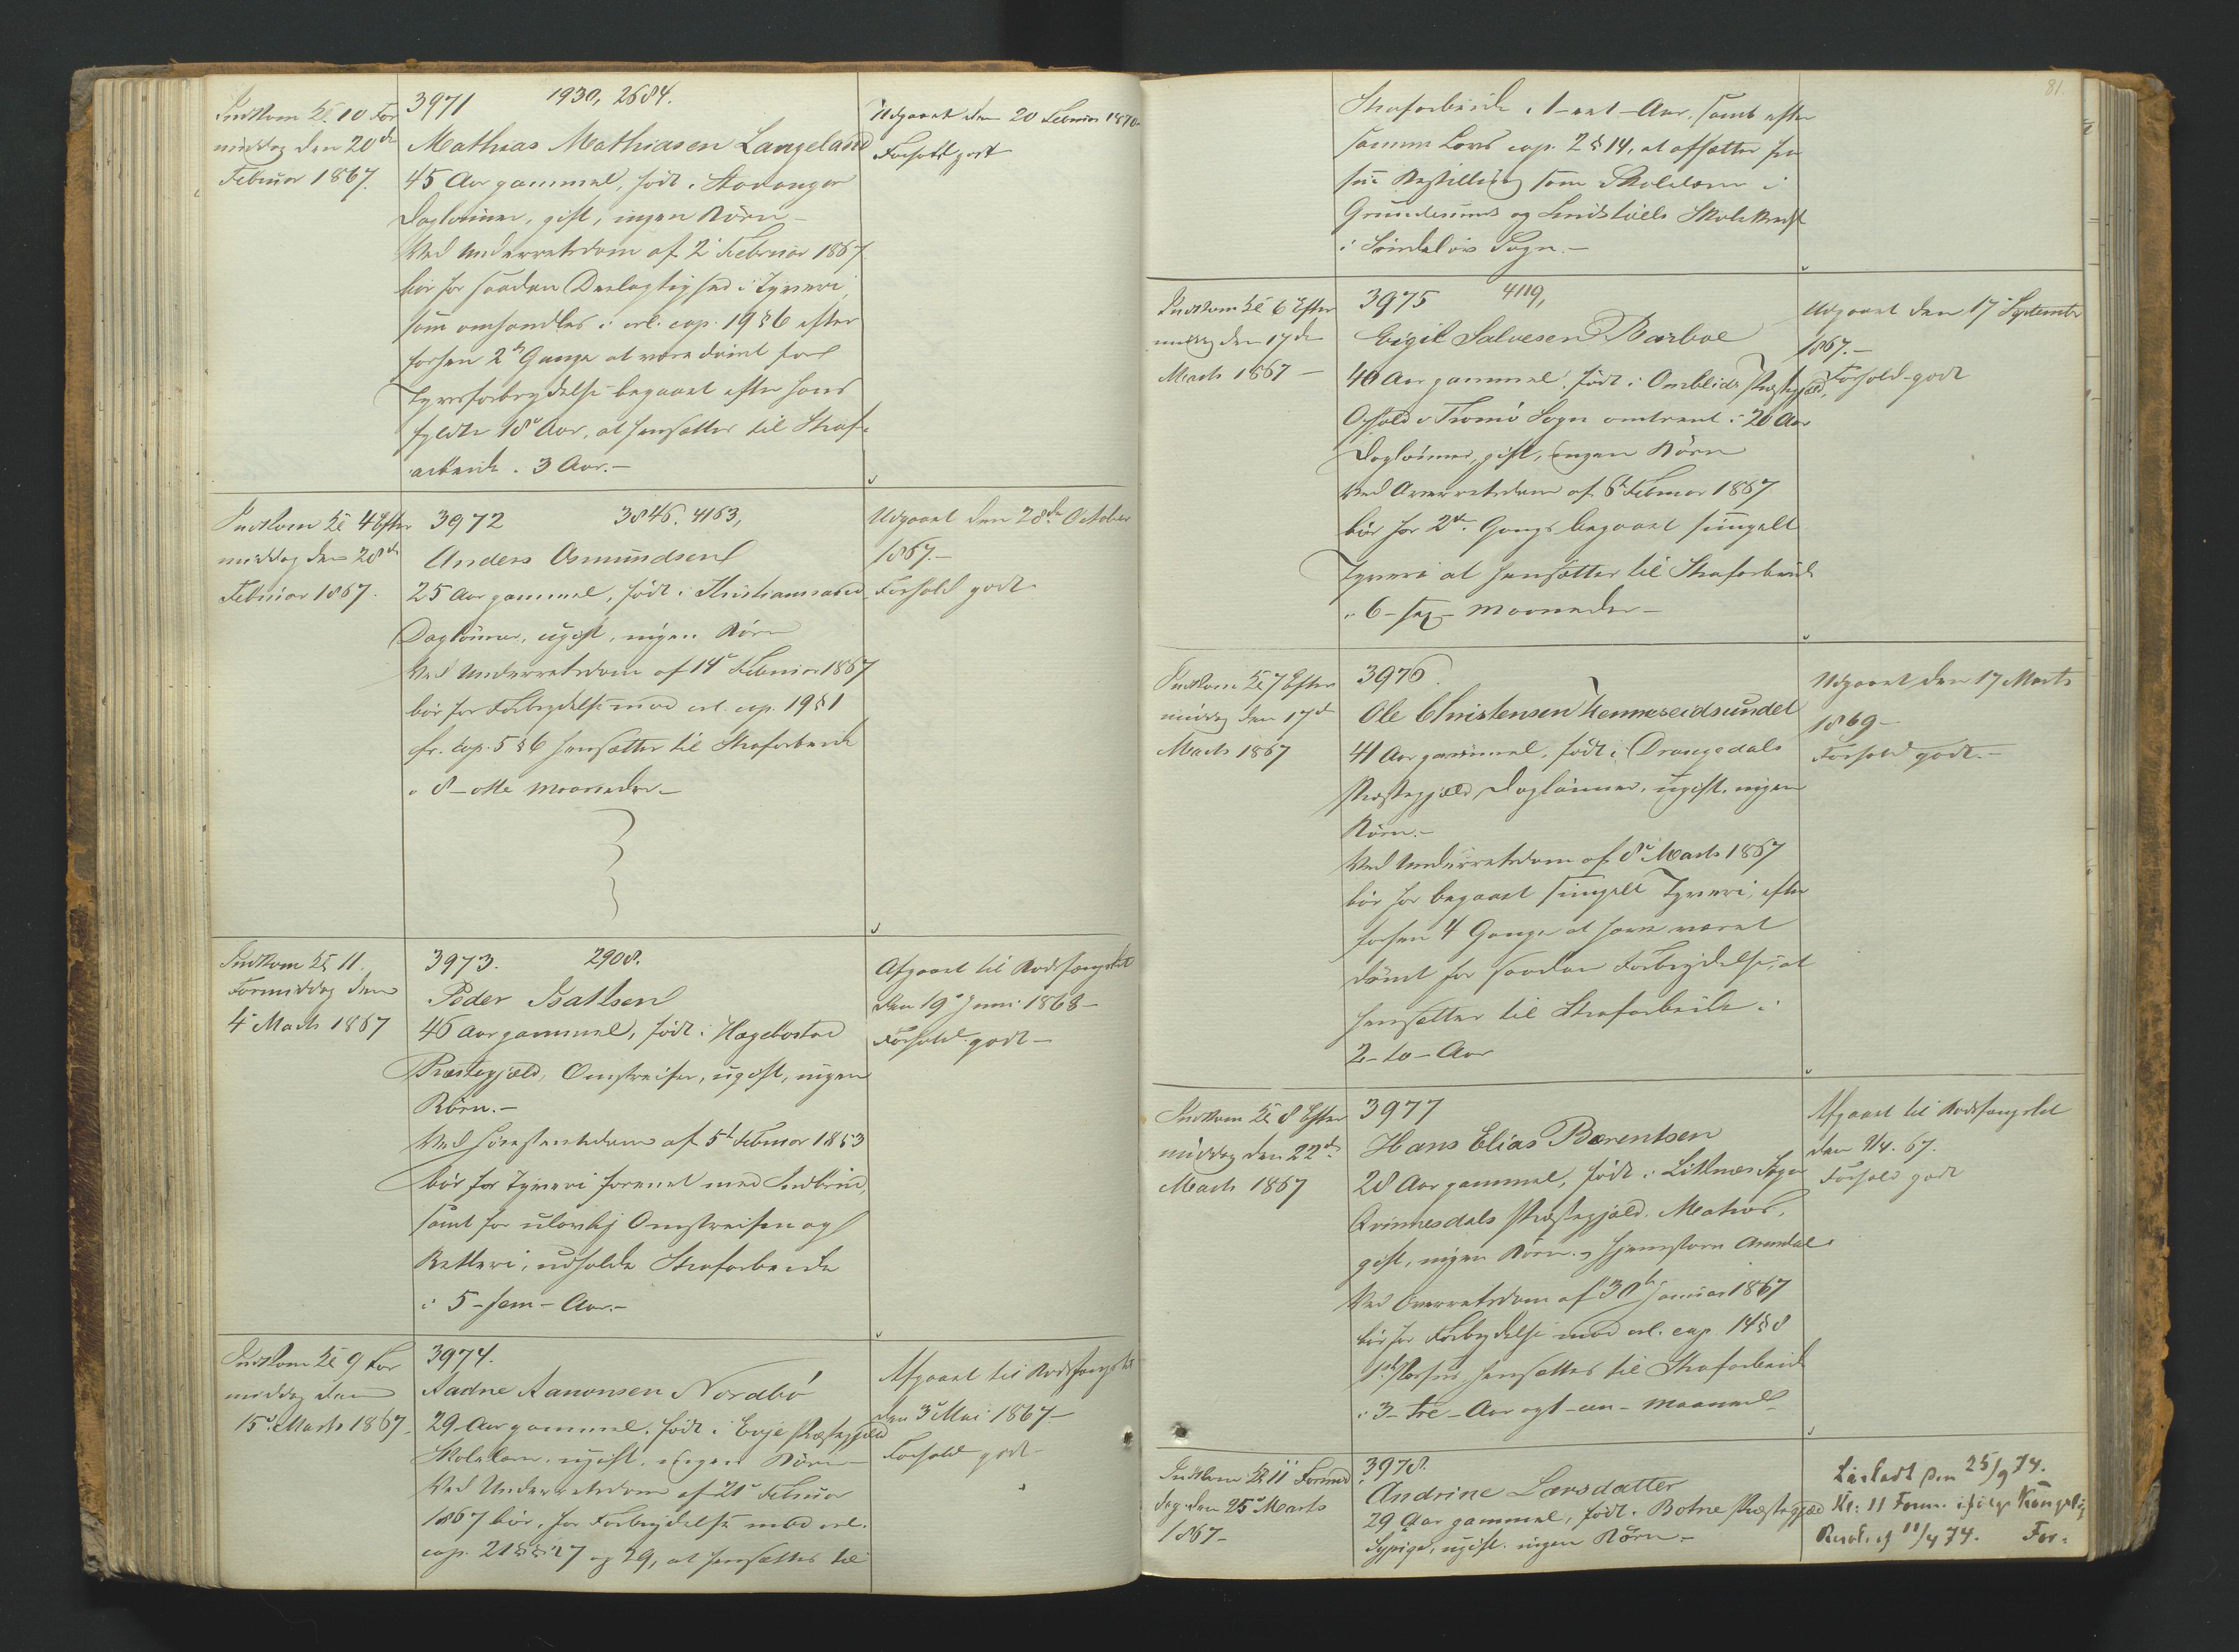 Indkom Kl. 10 For
middag den 20de
Februar 1867.
3971 1930, 2684.
Mathias Mathiasen Langeland
45 Aar gammel, født i Stavanger
Daglønner, gift, ingen Børn –
Ved Underretsdom af 2' Februar 1867
bør for saadan Deelagtighed i Tyveri,
som omhandles i crl. cap. 19 § 6 efter
forhen 2de Gange at være dømt for
Tyvsforbrydelse begaaet efter hans
fyldte 18' Aar, at hensættes til Straf-
arbeide i 3 Aar. –
Udgaaet den 20 Februar 1870
Forhold godt
Indkom Kl. 4 Efter
middag den 28de
Februar 1867.
3972 3846. 4163,
Anders Osmundsen
25 Aar gammel, født i Christianssand,
Daglønner, ugift, ingen Børn
Ved Underretsdom af 14' Februar 1867
bør for Forbrydelse mod crl. cap. 19 § 1
cfr. cap. 5 § 6 hensættes til Strafarbeide
i 8 – otte Maaneder. –
Udgaaet den 28de October
1867. –
Forhold godt
Indkom Kl. 11
Formiddag den
4' Marts 1867
3973. 2908.
Peder Isaksen
46 Aar gammel, født i Hægebostad
Præstegjæld, Omstreifer, ugift, ingen
Børn. –
Ved Høiesteretsdom af 5' Februar 1853
bør for Tyveri forenet med Indbrud,
samt for ulovlig Omstreifen og
Betleri, udholde Strafarbeide
i 5 – fem – Aar. –
Afgaaet til Bodsfængslet
den 19' Juni 1868 –
Forhold godt –
Indkom Kl. 9 For
middag den
15' Marts 1867.
3974.
Aadne Aanonsen Nordbø
29 Aar gammel, født i Evje Præstegjæld
Skolelærer, ugift, ingen Børn –
Ved Underretsdom af 21' Februar
1867 bør, for Forbrydelse mod crl.
cap. 21 §§ 27 og 29, at hensættes til
Afgaaet til Bodsfængslet
den 3' Mai 1867 –
Forhold godt
81.
Strafarbeide i 1 – eet – Aar, samt efter
samme Lovs cap. 2 § 14, at afsættes fra
sin Bestilling som Skolelærer i
og Skolekreds
i Søndeløv Sogn. –
Indkom Kl. 6 Efter
middag den 17de
Marts 1867 –
3975 4119,
Eigil Salvesen Barboe
40 Aar gammel, født i Omblids Præstegjæld,
Ophold i Tromø Sogn omtrent i 20 Aar
Daglønner, gift, ingen Børn
Ved Overretsdom af 6' Februar 1867
bør for 2de Gangs begaaet simpelt
Tyveri at hensættes til Strafarbeide
i 6 – sex – Maaneder –
Udgaaet den 17' September
1867. –
Forhold godt
Indkom Kl. 7 Efter
middag den 17de
Marts 1867
3976.
Ole Christensen Henneseidsundet
41 Aar gammel, født i Drangedals
Præstegjæld, Daglønner, ugift, ingen
Børn. –
Ved Underretsdom af 8' Marts 1867
bør for begaaet simpelt Tyveri, efter
forhen 4 Gange at have været
dømt for saadan Forbrydelse, at
hensættes til Strafarbeide i
2 – to – Aar
Udgaaet den 17 Marts
1869 –
Forhold godt. –
Indkom Kl. 8 Efter
middag den 22de
Marts 1867
3977
Hans Elias Bærentsen
28 Aar gammel, født i Liknes Sogn
Qvinnesdals Præstegjæld. Matros,
gift, ingen Børn, Hjemstavn Arendal
Ved Overretsdom af 30' Januar 1867
bør for Forbrydelse mod crl. cap. 14 § 8
hensættes til Strafarbeide
i 3 – tre – Aar og 1 – een – Maaned
Afgaaet til Bodsfængslet
den 2/4. 67.
Forhold godt
Indkom Kl. 11 Formid
dag den 25' Marts
1867 –
3978.
Andrine Larsdatter
29 Aar gammel, født i Botne Præstegjæld
Sypige, ugift, ingen Børn –
Løsladt den 25/9 74.
Kl: 11 Form. ifølge Kongelig
Resol. af 11/9 74. For-